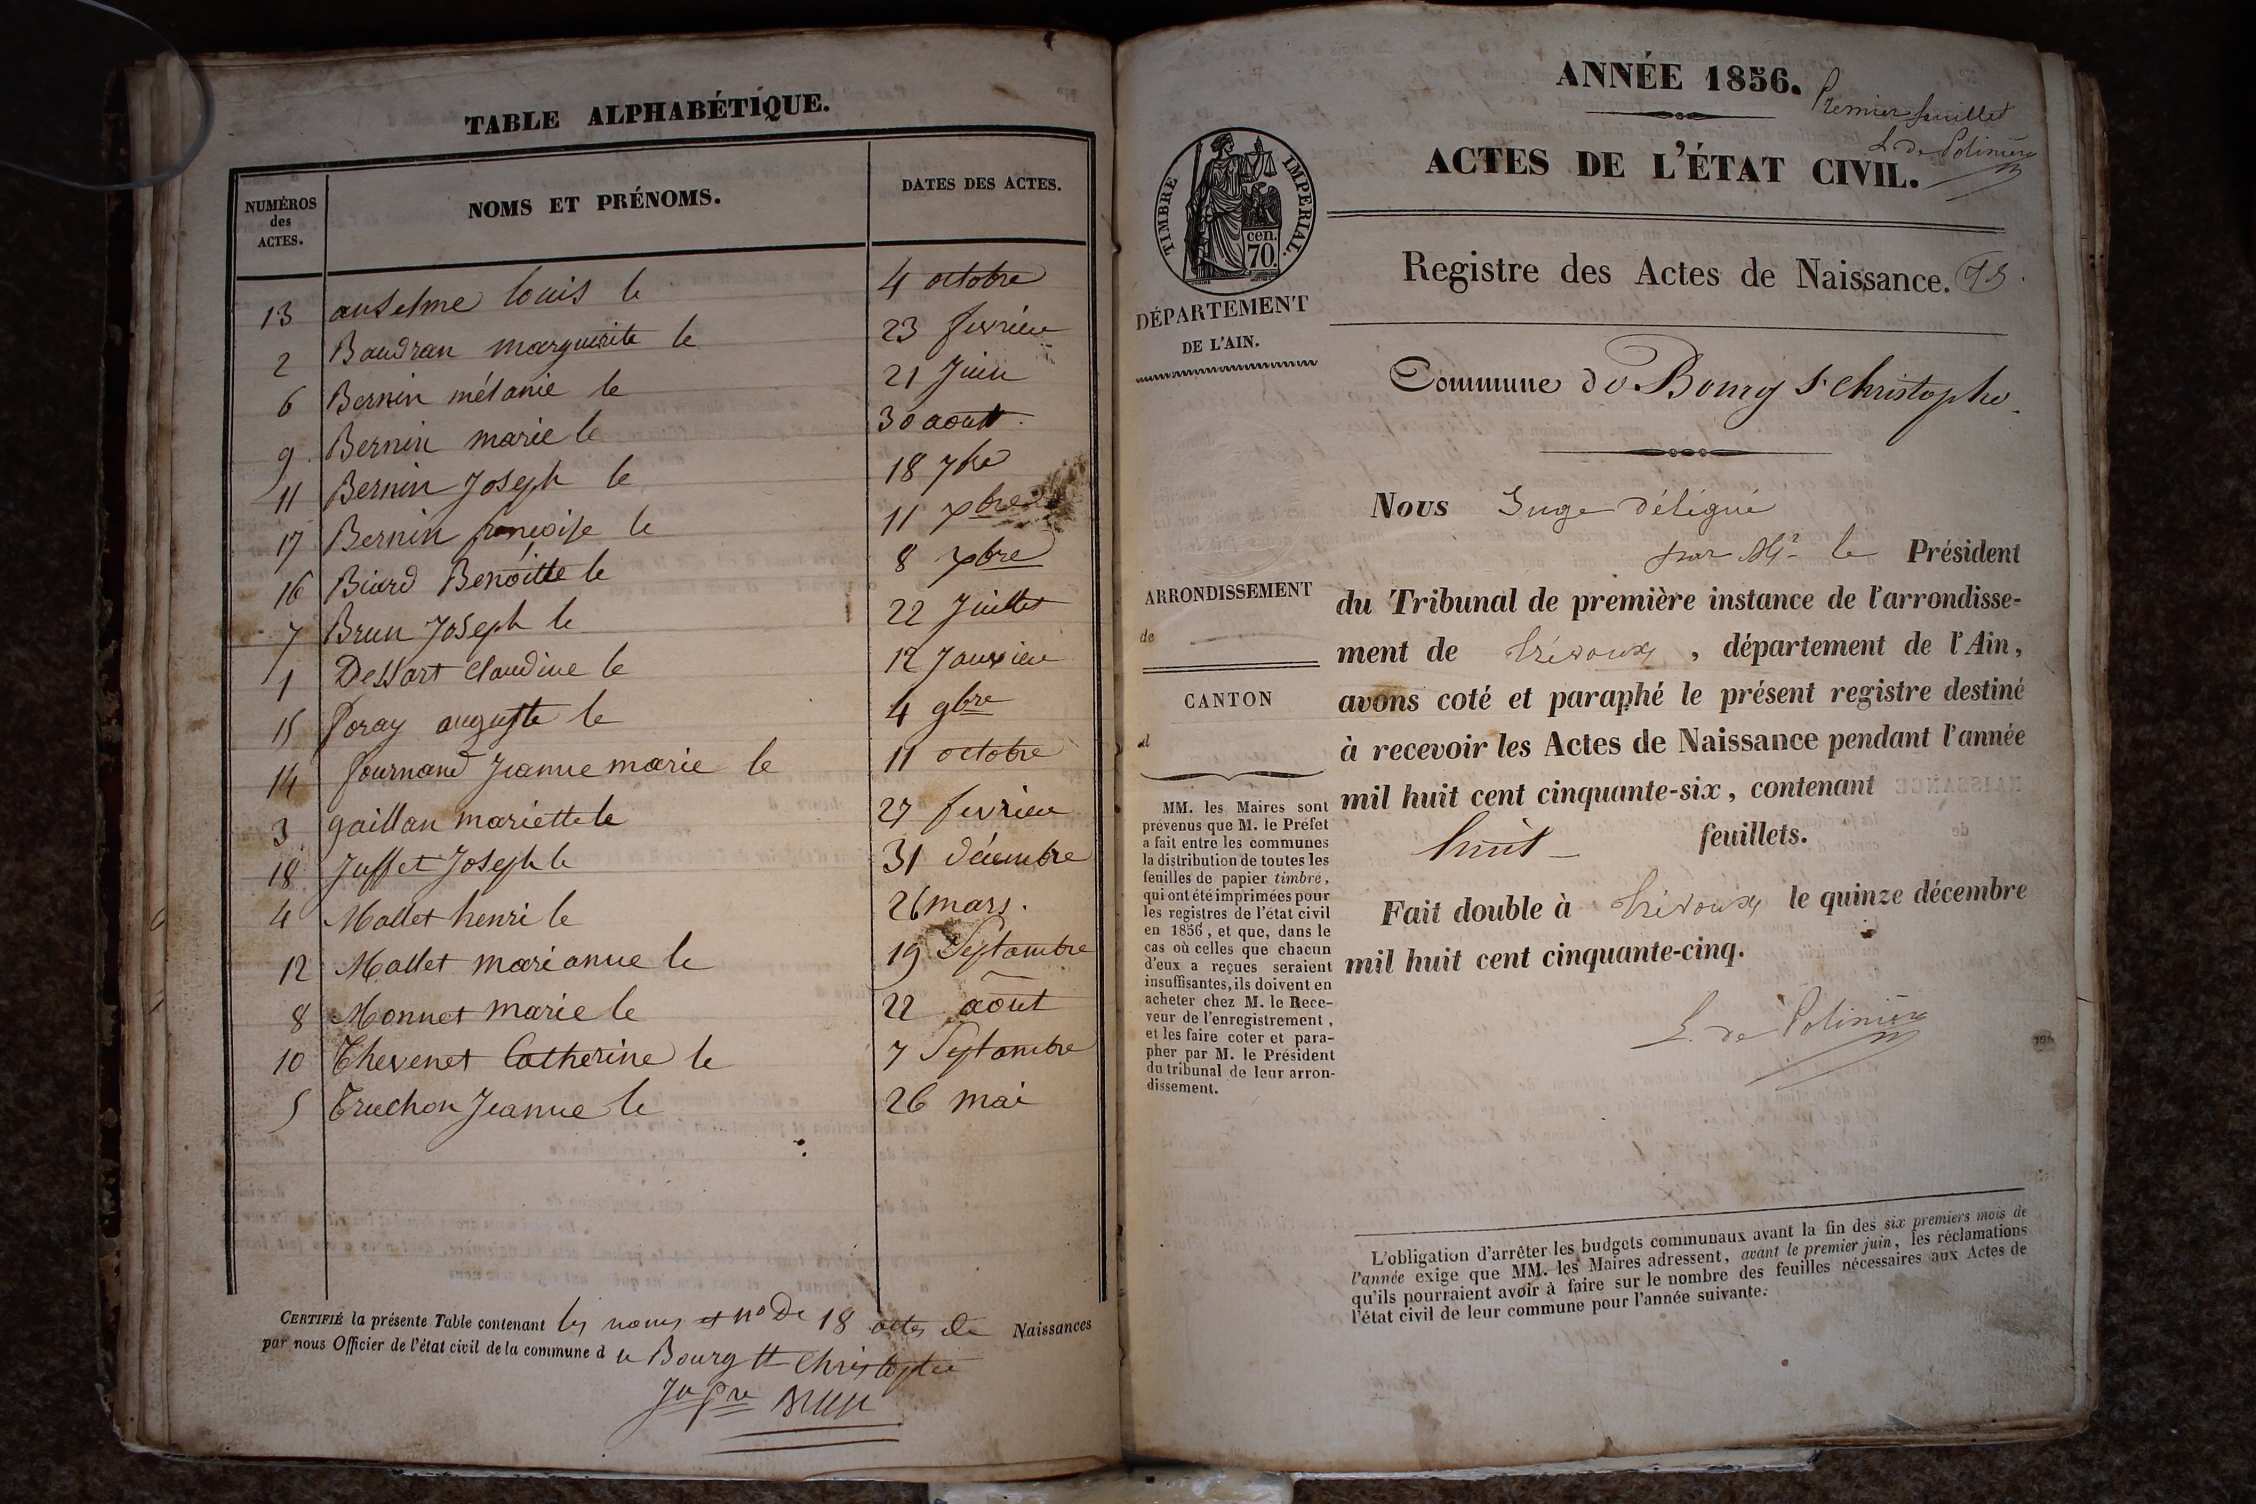 TABLE ALPHABÉTIQUE.
NUMÉROS des ACTES. NOMS ET PRÉNOMS. DATES DES ACTES.
13 anselme louis le 4 octobre
2 Baudran marguerite le 23 fevrier
6 Bernin mélanie le 21 Juin
9 Bernin marie le 30 aout
11 Bernin Joseph le 18 7bre
17 Bernin françoise le 11 xbre
16 Biard Benoitte le 8 xbre
7 Brun Joseph le 22 Juillet
1 Dessart Claudine le 12 Janvier
15 foray auguste le 4 9bre
14 fournand Jeanne marie le 11 octobre
3 gaillan mariette le 27 fevrier
18 Juffet Joseph le 31 décembre
4 Mallet henri le 26 mars.
12 Mallet marianne le 19 Septembre
8 Monnet marie le 22 août
10 Thevenet Catherine le 7 Septembre
5 Truchon Jeanne le 26 mai
CERTIFIÉ la présente Table contenant les noms et no De 18 actes de Naissances
par nous Officier de l'état civil de la commune d u Bourg St Christophe
Brun
ANNÉE 1856.
Premier feuillet
L. De Polinière
ACTES DE L'ÉTAT CIVIL.
TIMBRE IMPERIAL.
cen.
70.
Registre des Actes de Naissance.
DÉPARTEMENT
DE L'AIN.
Commune de Bourg St Christophe
Nous Juge délégué
par Mr le Président
ARRONDISSEMENT
de
CANTON
d
du Tribunal de première instance de l'arrondisse-
ment de Trévoux, département de l'Ain,
avons coté et paraphé le présent registre destiné
à recevoir les Actes de Naissance pendant l'année
mil huit cent cinquante-six, contenant
huit feuillets.
Fait double à Trévoux le quinze décembre
mil huit cent cinquante-cinq.
L. de Polinière
MM. les Maires sont
prévenus que M. le Préfet
a fait entre les communes
la distribution de toutes les
feuilles de papier timbré,
qui ont été imprimées pour
les registres de l'état civil
en 1856, et que, dans le
cas où celles que chacun
d'eux a reçues seraient
insuffisantes, ils doivent en
acheter chez M. le Rece-
veur de l'enregistrement,
et les faire coter et para-
pher par M. le Président
du tribunal de leur arron-
dissement.
L'obligation d'arrêter les budgets communaux avant la fin des six premiers mois de
l'année exige que MM. les Maires adressent, avant le premier juin, les réclamations
qu'ils pourraient avoir à faire sur le nombre des feuilles nécessaires aux Actes de
l'état civil de leur commune pour l'année suivante.